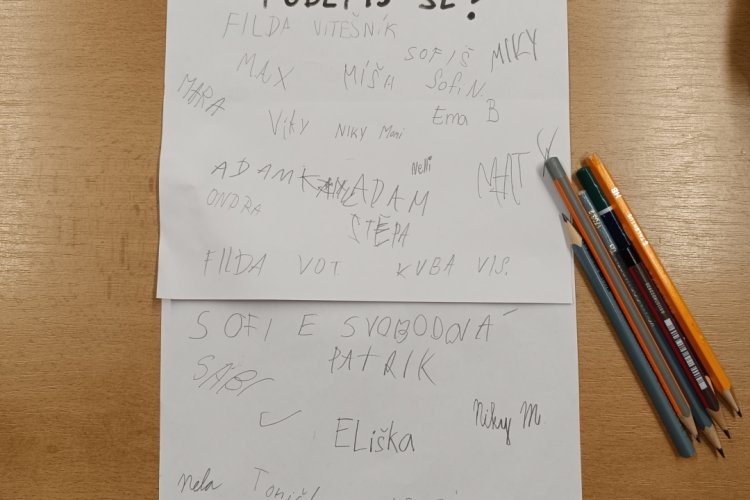 PODEPIŠ SE!
FILDA VITEŠNÍK
SOFIŠ MIKY
MAX MÍŠA SofiN.
MÁRA
Viky NIKY Ema B
Nelli
ADAM ADAM MAT
ONDRA
ŠTĚPA
FILDA VOT. KUBA VIS.
SOFIE SVOBODOVÁ
PATRIK
SÁBI
ELiška Niky M
Nela